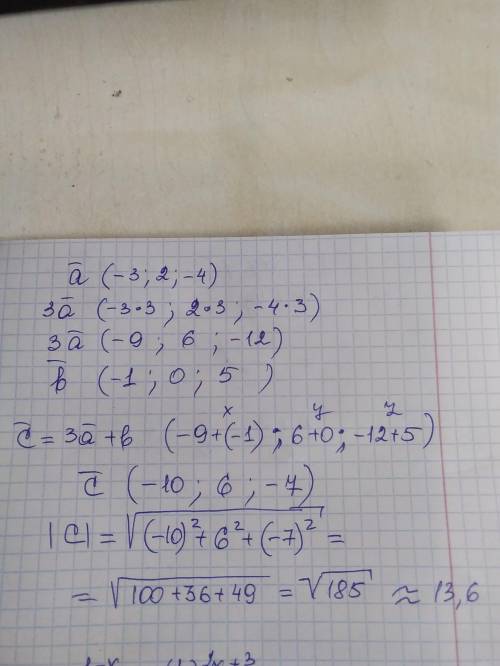 a̅ (-3; 2; -4)
3a̅ (-3·3 ; 2·3 ; -4·3)
3a̅ (-9 ; 6 ; -12)
b̅ (-1 ; 0 ; 5 )
x y z
c̅ = 3a̅+b (-9+(-1) ; 6+0; -12+5)
c̅ (-10 ; 6 ; -7)
|C| = √((-10)²+6²+(-7)²) =
= √(100+36+49) = √185 ≈ 13,6